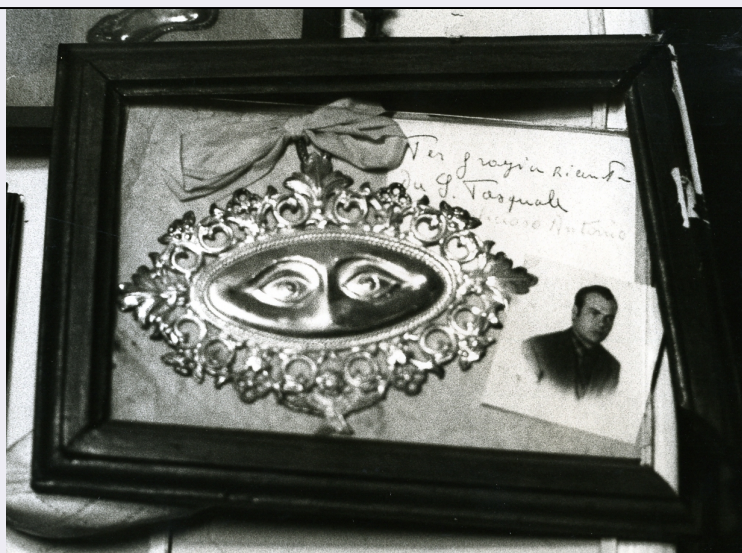 Per grazia ricevuta
da S. Pasquale
Antonio